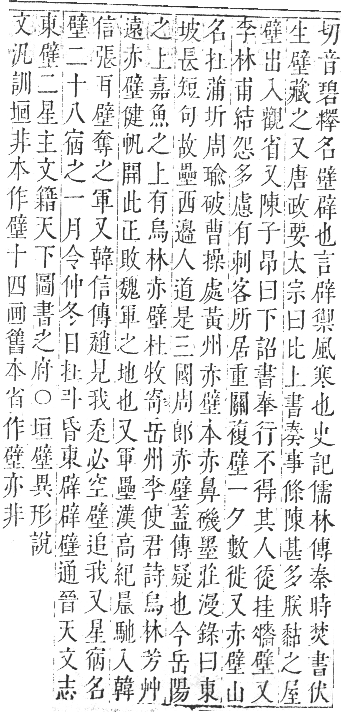 切音碧釋名壁辟也言辟禦風寒也史記儒林傳秦時焚書伏
生壁藏之又唐政要太宗曰比上書奏事條陳甚多朕黏之屋
壁出入觀省又陳子昂曰下詔書奉行不得其人徒挂牆壁又
李林甫結怨多慮有刺客所居重關複壁一夕數徙又赤壁山
名在蒲圻周瑜破曹操處黃州赤壁本赤鼻磯墨莊漫錄曰東
坡長短句故壘西邊人道是三國周郎赤壁蓋傳疑也今岳陽
之上嘉魚之上有烏林赤壁杜牧寄岳州李使君詩烏林芳艸
遠赤壁健帆開此正敗魏軍之地也又軍壘漢高紀晨馳入韓
信張耳壁奪之軍又韓信傳趙見我走必空壁追我又星宿名
壁二十八宿之一月令仲冬日在斗昏東辟辟壁通晉天文志
東壁二星主文籍天下圖書之府〇垣壁異形說
文汎訓垣非本作壁十四画舊本省作壁亦非